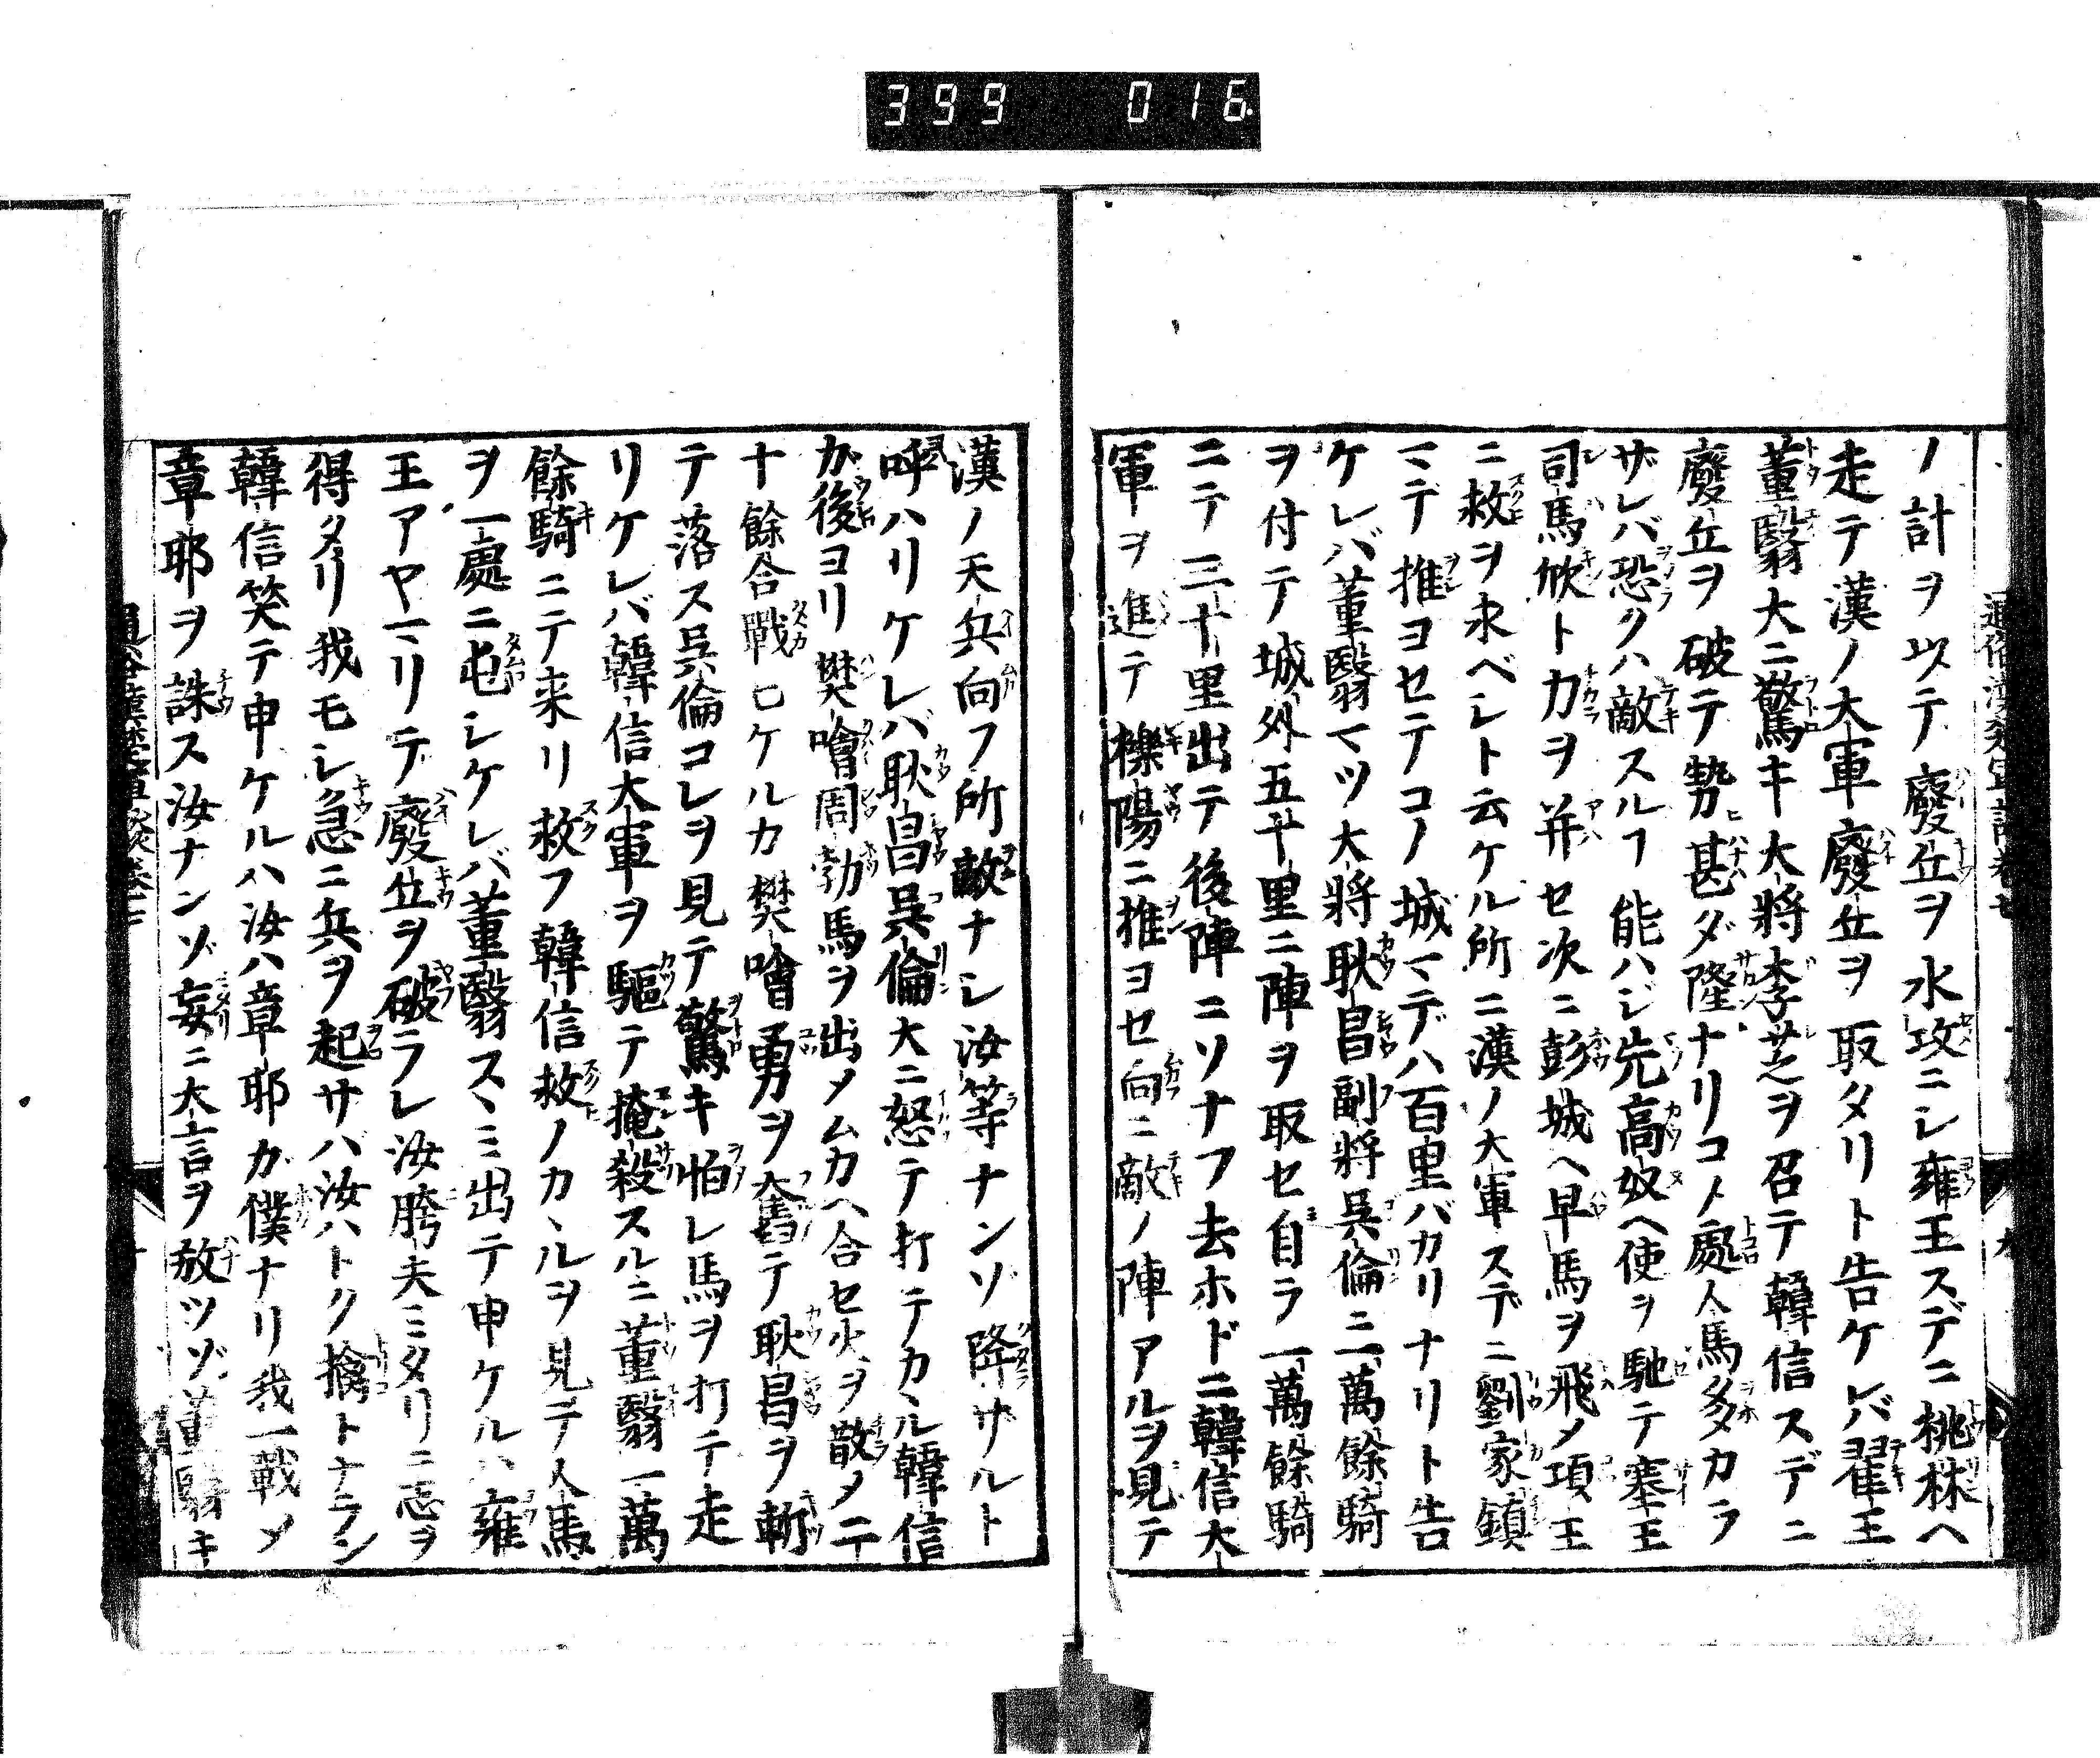 399 016
ノ計ヲ以テ廢丘ヲ水攻ニシ雍王スデニ桃林ヘ
走テ漢ノ大軍廢丘ヲ取タリト告ケレバ翟王
董翳大ニ驚キ大將李芝ヲ召テ韓信スデニ
廢丘ヲ破テ勢甚ダ隆ナリコノ處人馬多カラ
ザレバ恐クハ敵スルヿ能ハジ先高奴ヘ使ヲ馳テ塞王
司馬欣ト力ヲ并セ次ニ彭城ヘ早馬ヲ飛メ項王
ニ救ヲ求ベシト云ケル所ニ漢ノ大軍スデニ劉家鎮
マデ推ヨセテコノ城マデハ百里バカリナリト告
ケレバ董翳マツ大將耿昌副將吳倫ニ二萬餘騎
ヲ付テ城外五十里ニ陣ヲ取セ自ラ一萬餘騎
ニテ三十里出テ後陣ニソナフ去ホドニ韓信大
軍ヲ進テ櫟陽ニ推ヨセ向ニ敵ノ陣アルヲ見テ
漢ノ天兵向フ所敵ナシ汝等ナンゾ降サルト
呼ハリケレバ耿昌吳倫大ニ怒テ打テカヽル韓信
カ後ヨリ樊噲周勃馬ヲ出メムカヘ合セ火ヲ散メ二
十餘合戰ヒケルカ樊噲勇ヲ奮テ耿昌ヲ斬
テ落ス吳倫コレヲ見テ驚キ怕レ馬ヲ打テ走
リケレバ韓信大軍ヲ驅テ掩殺スルニ董翳一萬
餘騎ニテ来リ救フ韓信救ノカヽルヲ見テ人馬
ヲ一處ニ屯シケレバ董翳スヽミ出テ申ケルハ雍
王アヤマリテ廢丘ヲ破ラレ汝胯夫ミタリニ志ヲ
得タリ我モシ急ニ兵ヲ起サバ汝ハトク擒トナラン
韓信笑テ申ケルハ汝ハ章耶カ僕ナリ我一戰メ
章耶ヲ誅ス汝ナンゾ妄ニ大言ヲ放ツゾ董翳キ